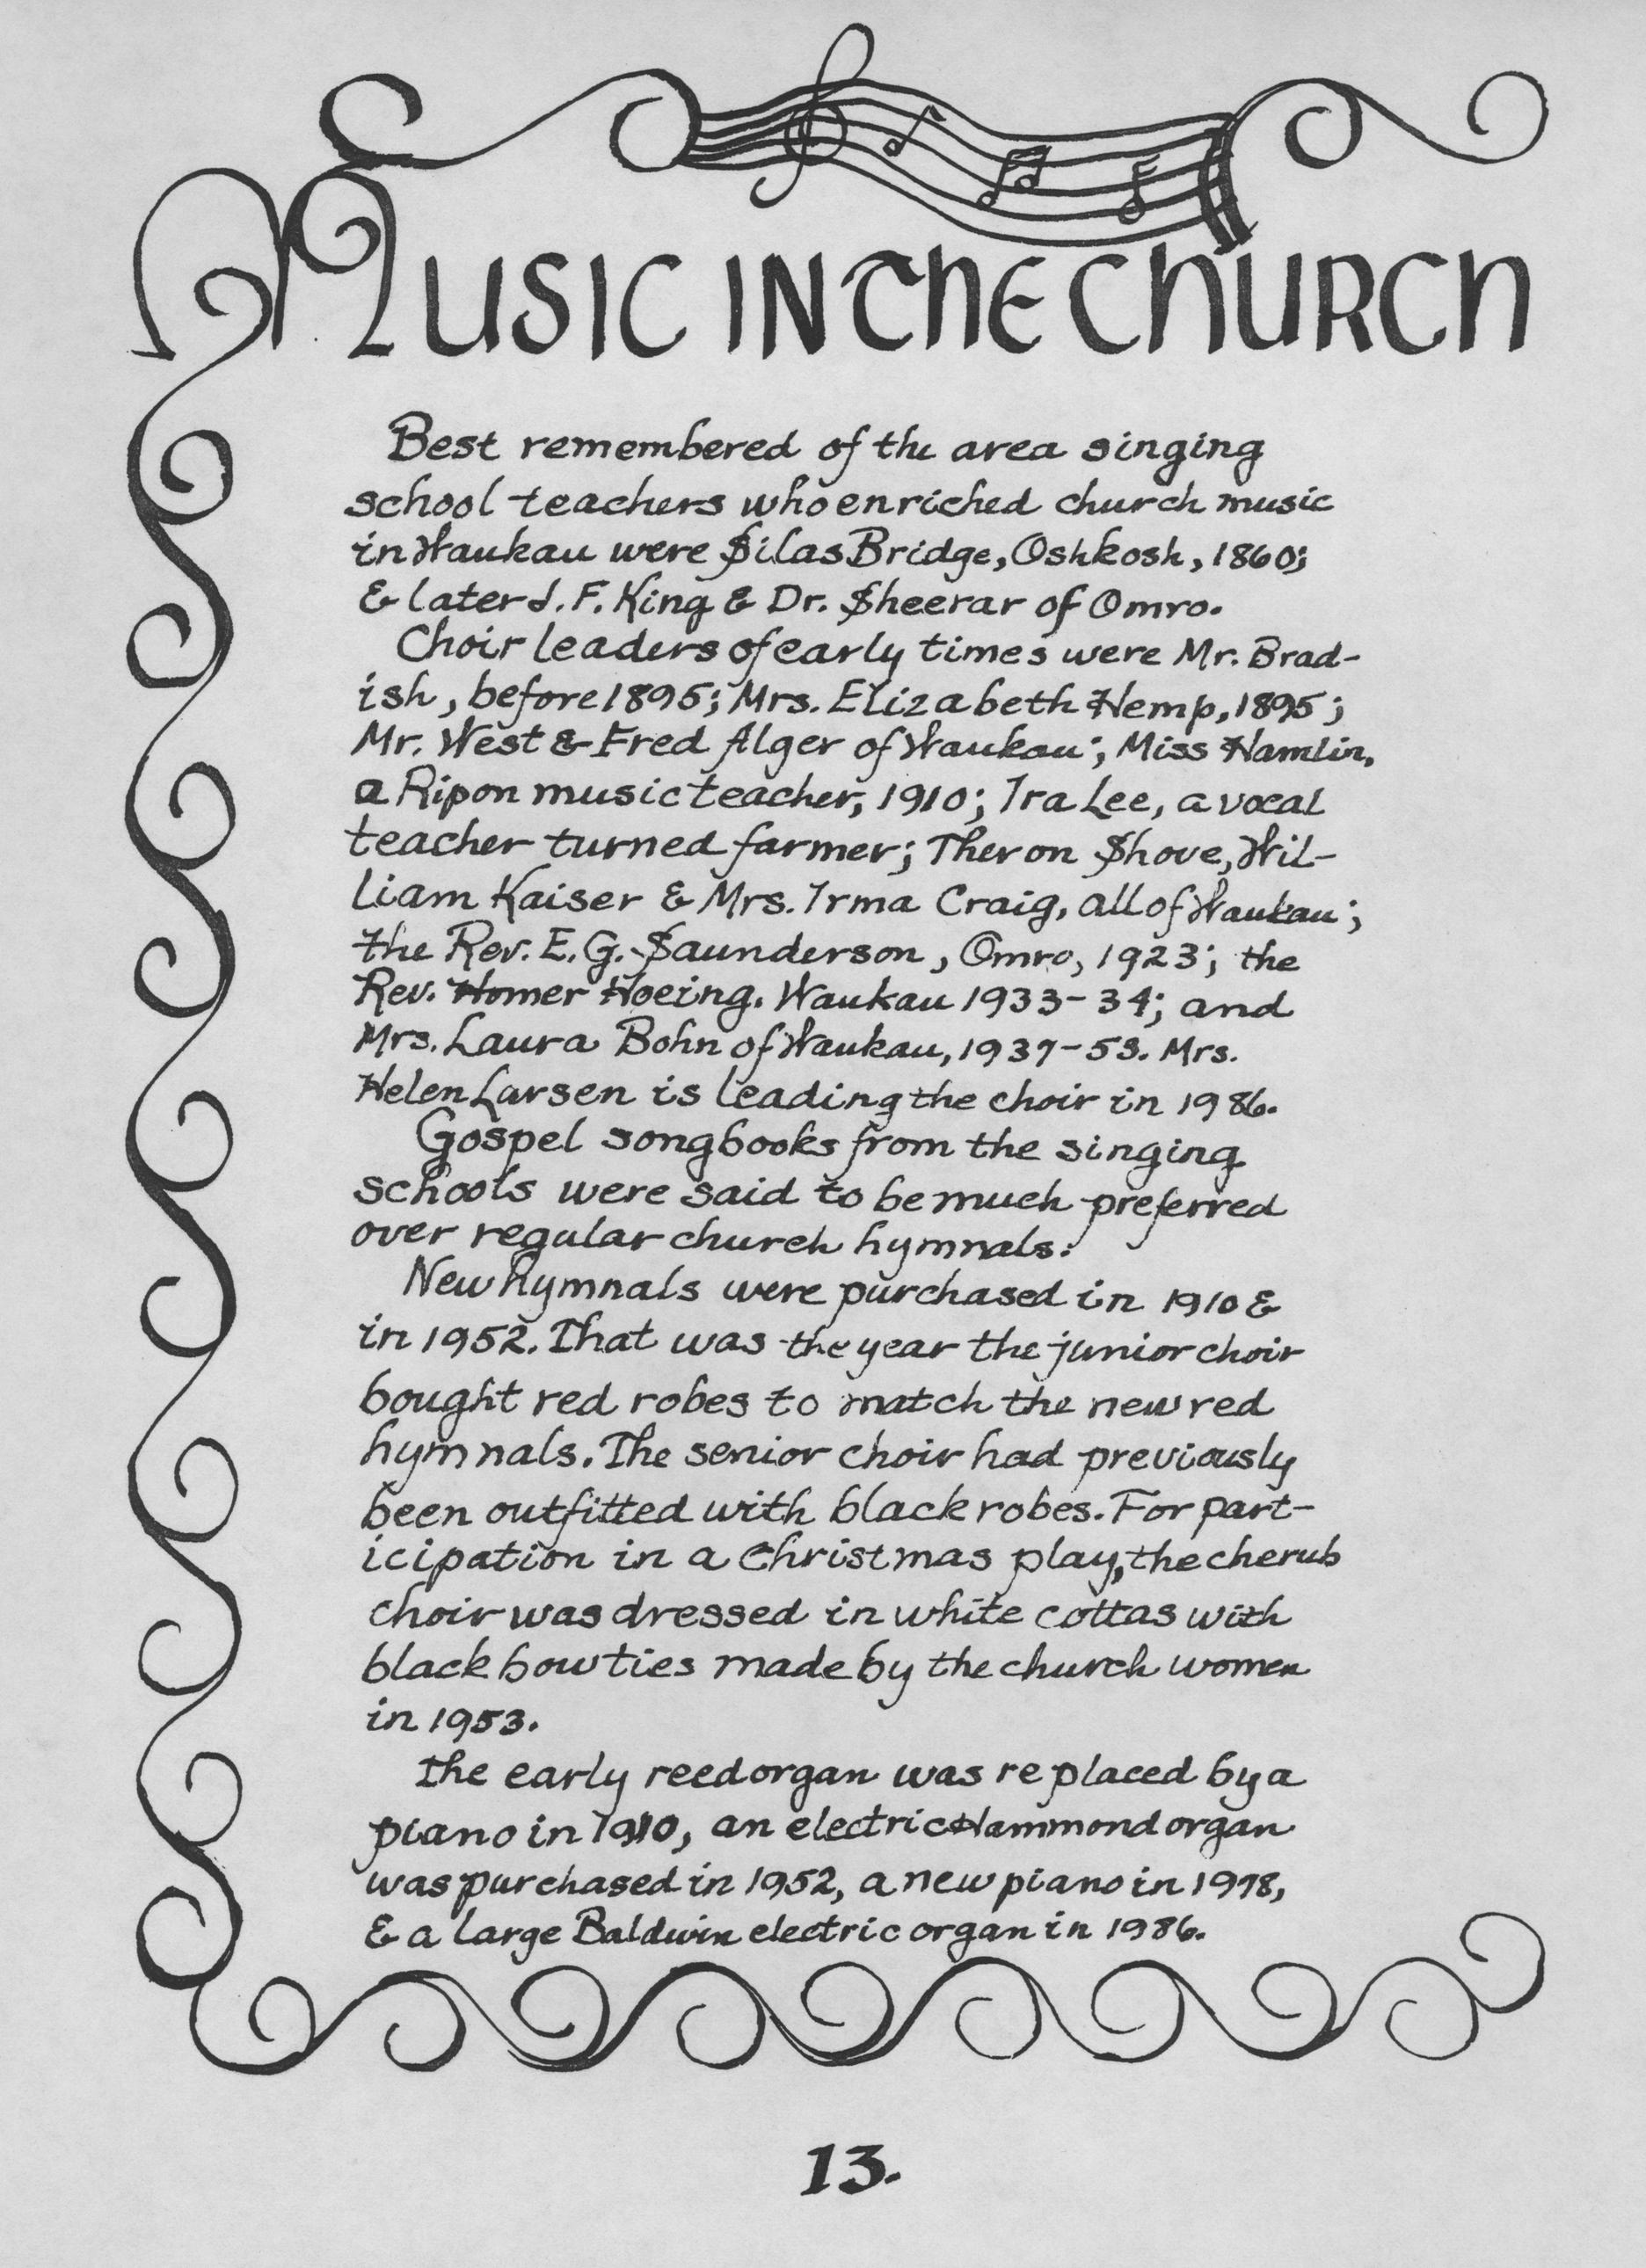 MUSIC IN THE CHURCH
Best remembered of the area singing
school teachers who enriched church music
in Waukau were Silas Bridge, Oshkosh, 1860;
& later J. F. King & Dr. Sheerar of Omro.
Choir leaders of early times were Mr. Brad-
ish, before 1895; Mrs. Elizabeth Hemp, 1895;
Mr. West & Fred Alger of Waukau; Miss Hamlin,
a Ripon music teacher, 1910; Ira Lee, a vocal
teacher turned farmer; Theron Shove, Wil-
liam Kaiser & Mrs. Irma Craig, all of Waukau;
the Rev. E. G. Saunderson, Omro, 1923; the
Rev. Homer Hoeing, Waukau 1933-34; and
Mrs. Laura Bohn of Waukau, Mrs.
Helen Larsen is leading the choir in 1986.
Gospel songbooks from the singing
schools were said to be much preferred
over regular church hymnals.
New hymnals were purchased in 1910 &
in 1952. That was the year the junior choir
bought red robes to match the new red
hymnals. The senior choir had previously
been outfitted with black robes. For part-
icipation in a Christmas play, the cherub
choir was dressed in white cottas with
black bow ties made by the church women
in 1953.
The early reed organ was replaced by a
piano in 1910, an electric Hammond organ
was purchased in 1952, a new piano in 1978,
& a large Baldwin electric organ in 1986.
13.